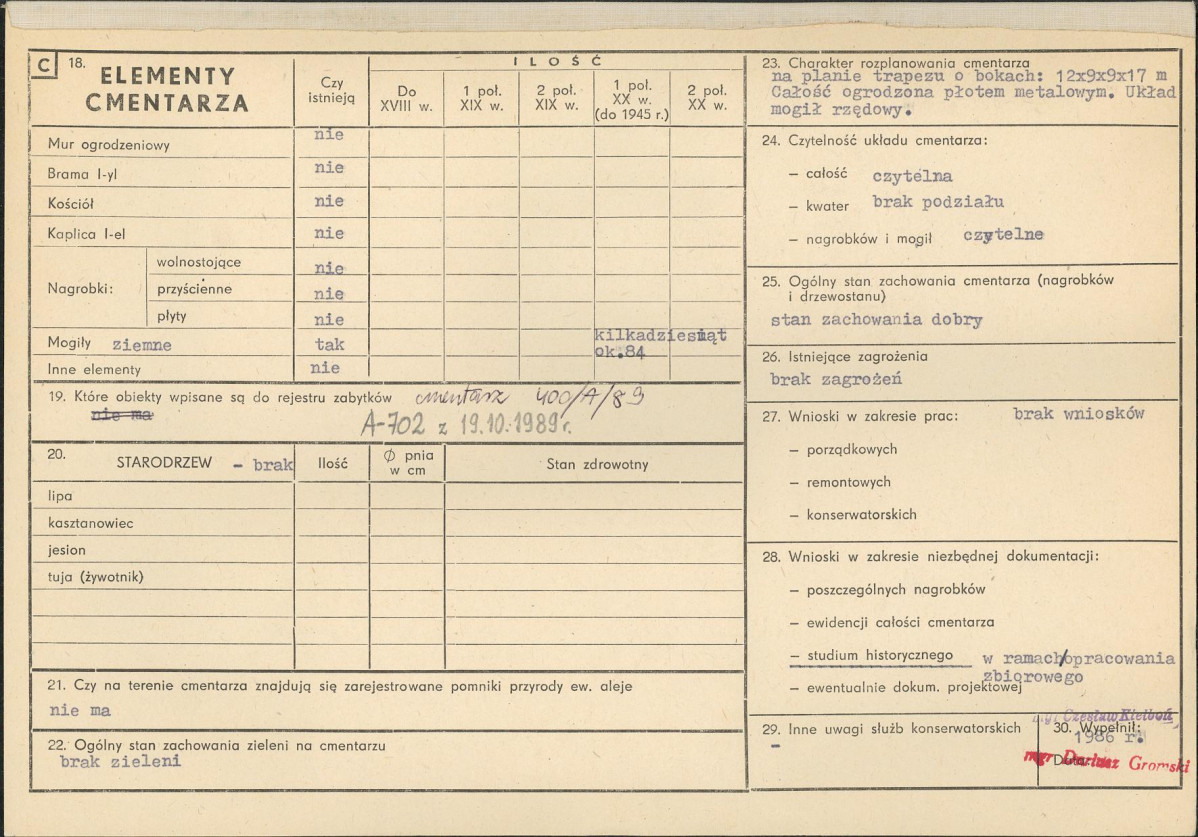 C 18. ELEMENTY CMENTARZA
Czy istnieją
ILOŚĆ
Do XVIII w.
1 poł. XIX w.
2 poł. XIX w.
1 poł. XX w. (do 1945 r.)
2 poł. XX w.
Mur ogrodzeniowy nie
Brama I-yl nie
Kościół nie
Kaplica I-el nie
Nagrobki:
wolnostojące nie
przyścienne nie
płyty nie
Mogiły ziemne tak kilkadziesiąt
ok.84
Inne elementy nie
19. Które obiekty wpisane są do rejestru zabytków cmentarz 400/A/89
nie ma
A-702 z 19.10.1989r.
20. STARODRZEW - brak
Ilość
Ø pnia w cm
Stan zdrowotny
lipa
kasztanowiec
jesion
tuja (żywotnik)
21. Czy na terenie cmentarza znajdują się zarejestrowane pomniki przyrody ew. aleje
nie ma
22. Ogólny stan zachowania zieleni na cmentarzu
brak zieleni
23. Charakter rozplanowania cmentarza
na planie trapezu o bokach: 12x9x9x17 m
Całość ogrodzona płotem metalowym. Układ
mogił rzędowy.
24. Czytelność układu cmentarza:
– całość czytelna
– kwater brak podziału
– nagrobków i mogił czytelne
25. Ogólny stan zachowania cmentarza (nagrobków
i drzewostanu)
stan zachowania dobry
26. Istniejące zagrożenia
brak zagrożeń
27. Wnioski w zakresie prac: brak wniosków
– porządkowych
– remontowych
– konserwatorskich
28. Wnioski w zakresie niezbędnej dokumentacji:
– poszczególnych nagrobków
– ewidencji całości cmentarza
– studium historycznego w ramach/opracowania
zbiorowego
– ewentualnie dokum. projektowej
29. Inne uwagi służb konserwatorskich
–
mgr Czesław Kiełboń
30. Wypełnił:
1986 r.
Data:
mgr Dariusz Gromski